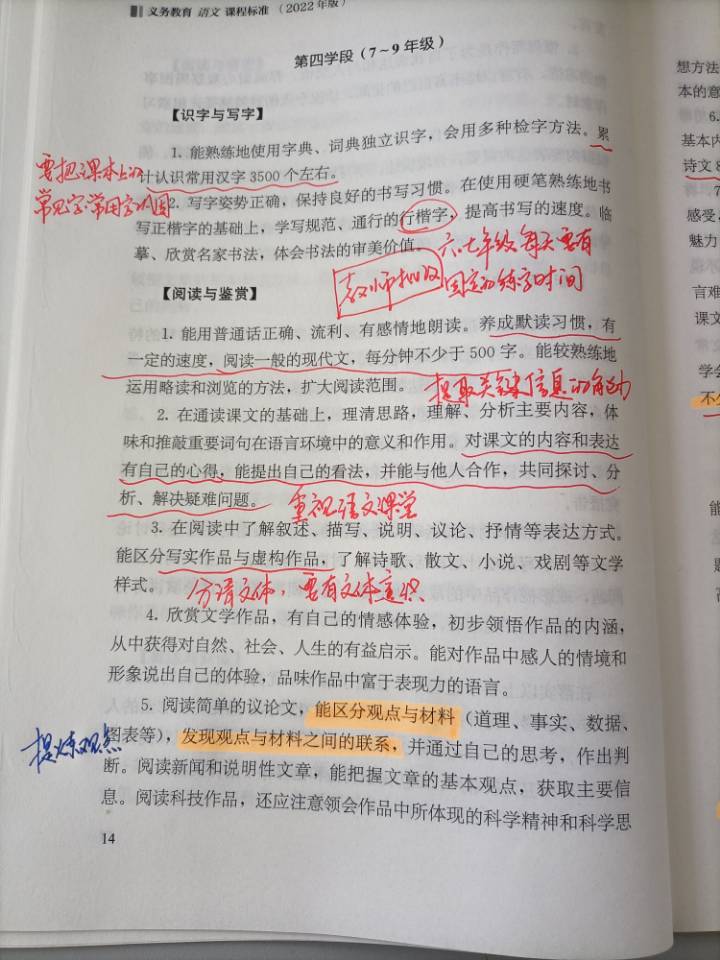 义务教育 语文 课程标准（2022年版）
第四学段（7～9年级）
【识字与写字】
1. 能熟练地使用字典、词典独立识字，会用多种检字方法。累
计认识常用汉字3500个左右。
要把课本上的
常见字常用字认
2. 写字姿势正确，保持良好的书写习惯。在使用硬笔熟练地书
写正楷字的基础上，学写规范、通行的行楷字，提高书写的速度。临
摹、欣赏名家书法，体会书法的审美价值。
六七年级每天要有
固定的练字时间
教师批改
【阅读与鉴赏】
1. 能用普通话正确、流利、有感情地朗读。养成默读习惯，有
一定的速度，阅读一般的现代文，每分钟不少于500字。能较熟练地
运用略读和浏览的方法，扩大阅读范围。
提取关键信息的能力
2. 在通读课文的基础上，理清思路，理解、分析主要内容，体
味和推敲重要词句在语言环境中的意义和作用。对课文的内容和表达
有自己的心得，能提出自己的看法，并能与他人合作，共同探讨、分
析、解决疑难问题。
重视语文课堂
3. 在阅读中了解叙述、描写、说明、议论、抒情等表达方式。
能区分写实作品与虚构作品，了解诗歌、散文、小说、戏剧等文学
样式。
分清文体，要有文体意识
4. 欣赏文学作品，有自己的情感体验，初步领悟作品的内涵，
从中获得对自然、社会、人生的有益启示。能对作品中感人的情境和
形象说出自己的体验，品味作品中富于表现力的语言。
5. 阅读简单的议论文，能区分观点与材料（道理、事实、数据、
图表等），发现观点与材料之间的联系，并通过自己的思考，作出判
断。阅读新闻和说明性文章，能把握文章的基本观点，获取主要信
息。阅读科技作品，还应注意领会作品中所体现的科学精神和科学思
提炼观点
14
想方法
本的意
6.
基本内
诗文8
7
感受
魅力
言难
课文
学会
不少
能